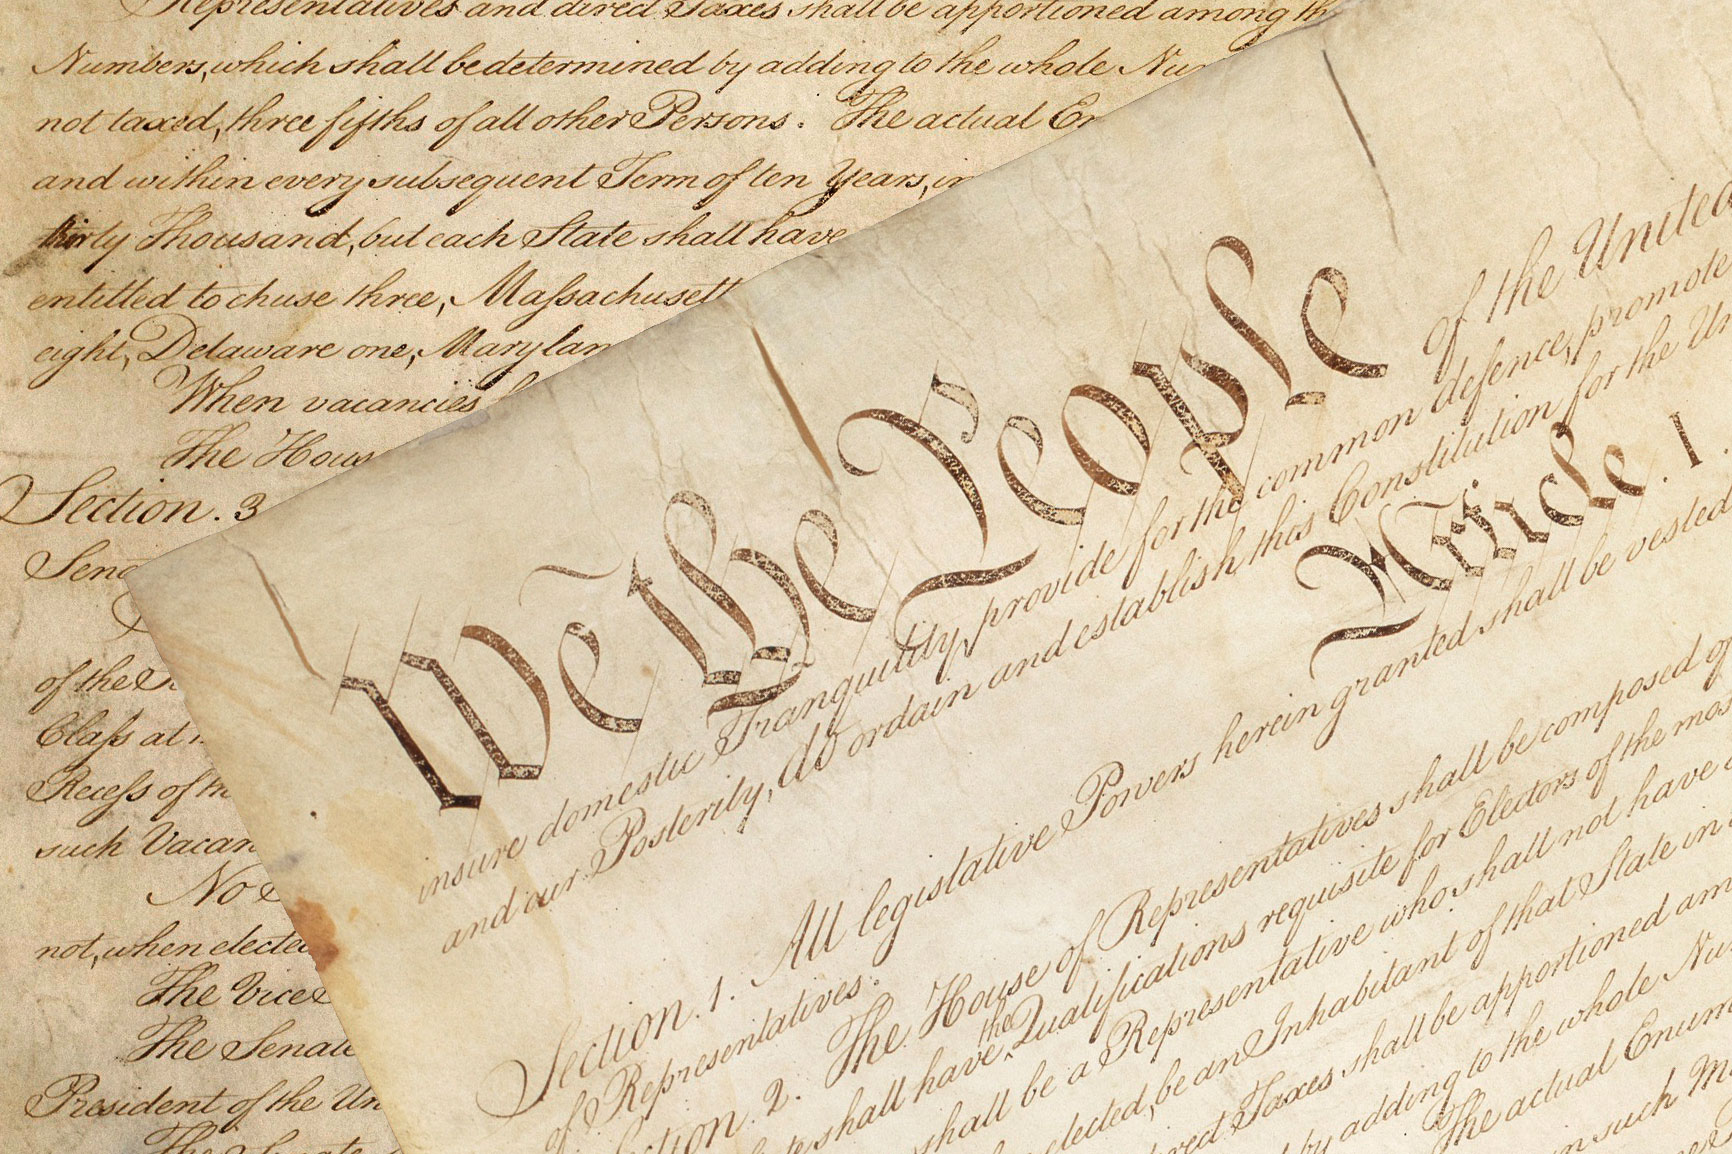 Representatives and direct Taxes shall be apportioned among
Numbers, which shall be determined by adding to the whole
not taxed, three fifths of all other Persons. The actual
and within every subsequent Term of ten Years, in
thirty Thousand, but each State shall have
entitled to chuse three, Maſsachusett
eight, Delaware one, Marylan
When vacancies
The Hous
Section. 3
Sena
of the
Claſs at
Receſs of th
such Vacan
No
not, when elected
The Vice
The Senate
President of the Un
The Senate
We the People of the United
insure domestic Tranquility, provide for the common defence, promote
and our Posterity, do ordain and establish this Constitution for the Un
Article. I.
Section. 1. All legislative Powers herein granted shall be vested
of Representatives.
Section. 2. The House of Representatives shall be composed of
shall have the Qualifications requisite for Electors of the mos
shall be a Representative who shall not have
elected, be an Inhabitant of that State in
direct Taxes shall be apportioned am
by adding to the whole Nu
The actual Enum
in such M